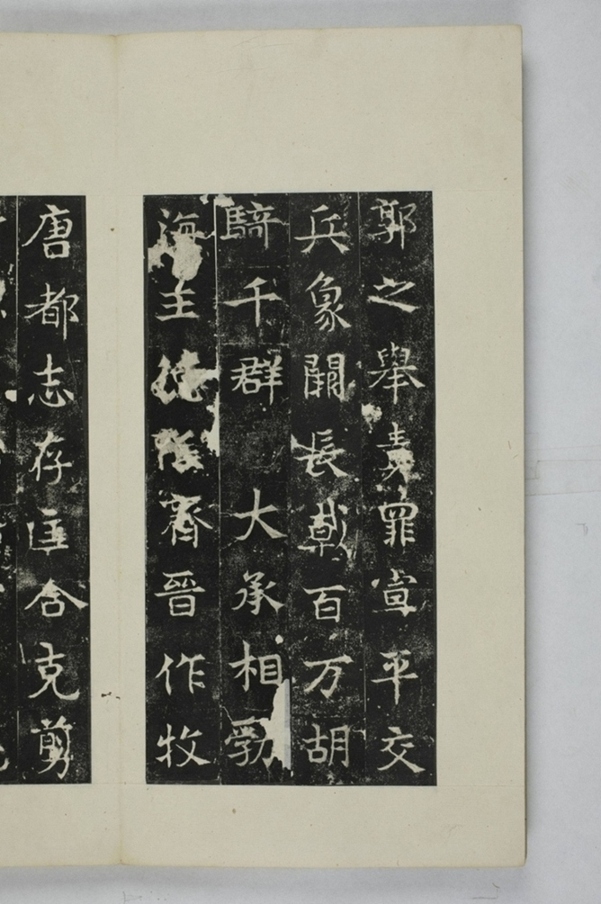 郭之舉責罪宣平交
兵象闕長戟百万胡
騎千群 大承相勃
海王齊晉作牧
唐都志存匡合克剪